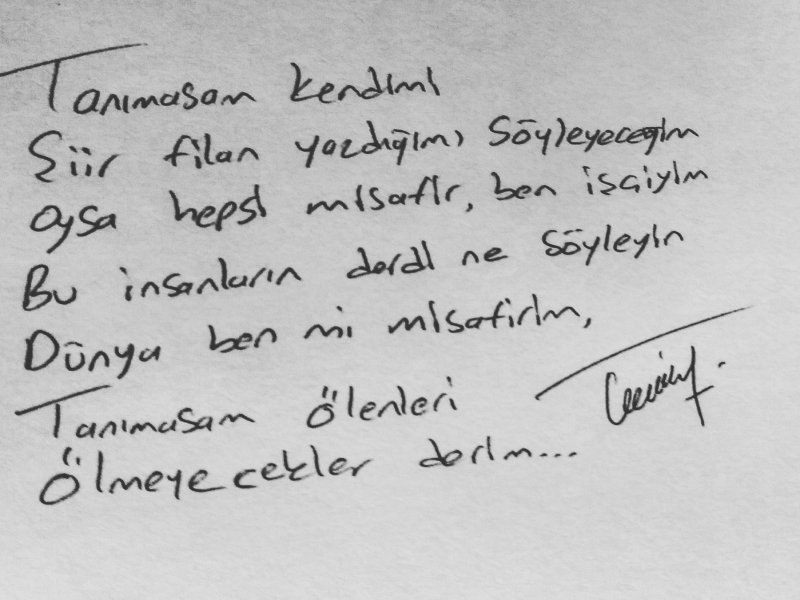 Tanımasam kendimi
Şiir filan yazdığımı söyleyeceğim
oysa hepsi misafir, ben işçiyim
Bu insanların derdi ne söyleyin
Dünya ben mi misafirim,
Tanımasam ölenleri
Ölmeyecekler derim...